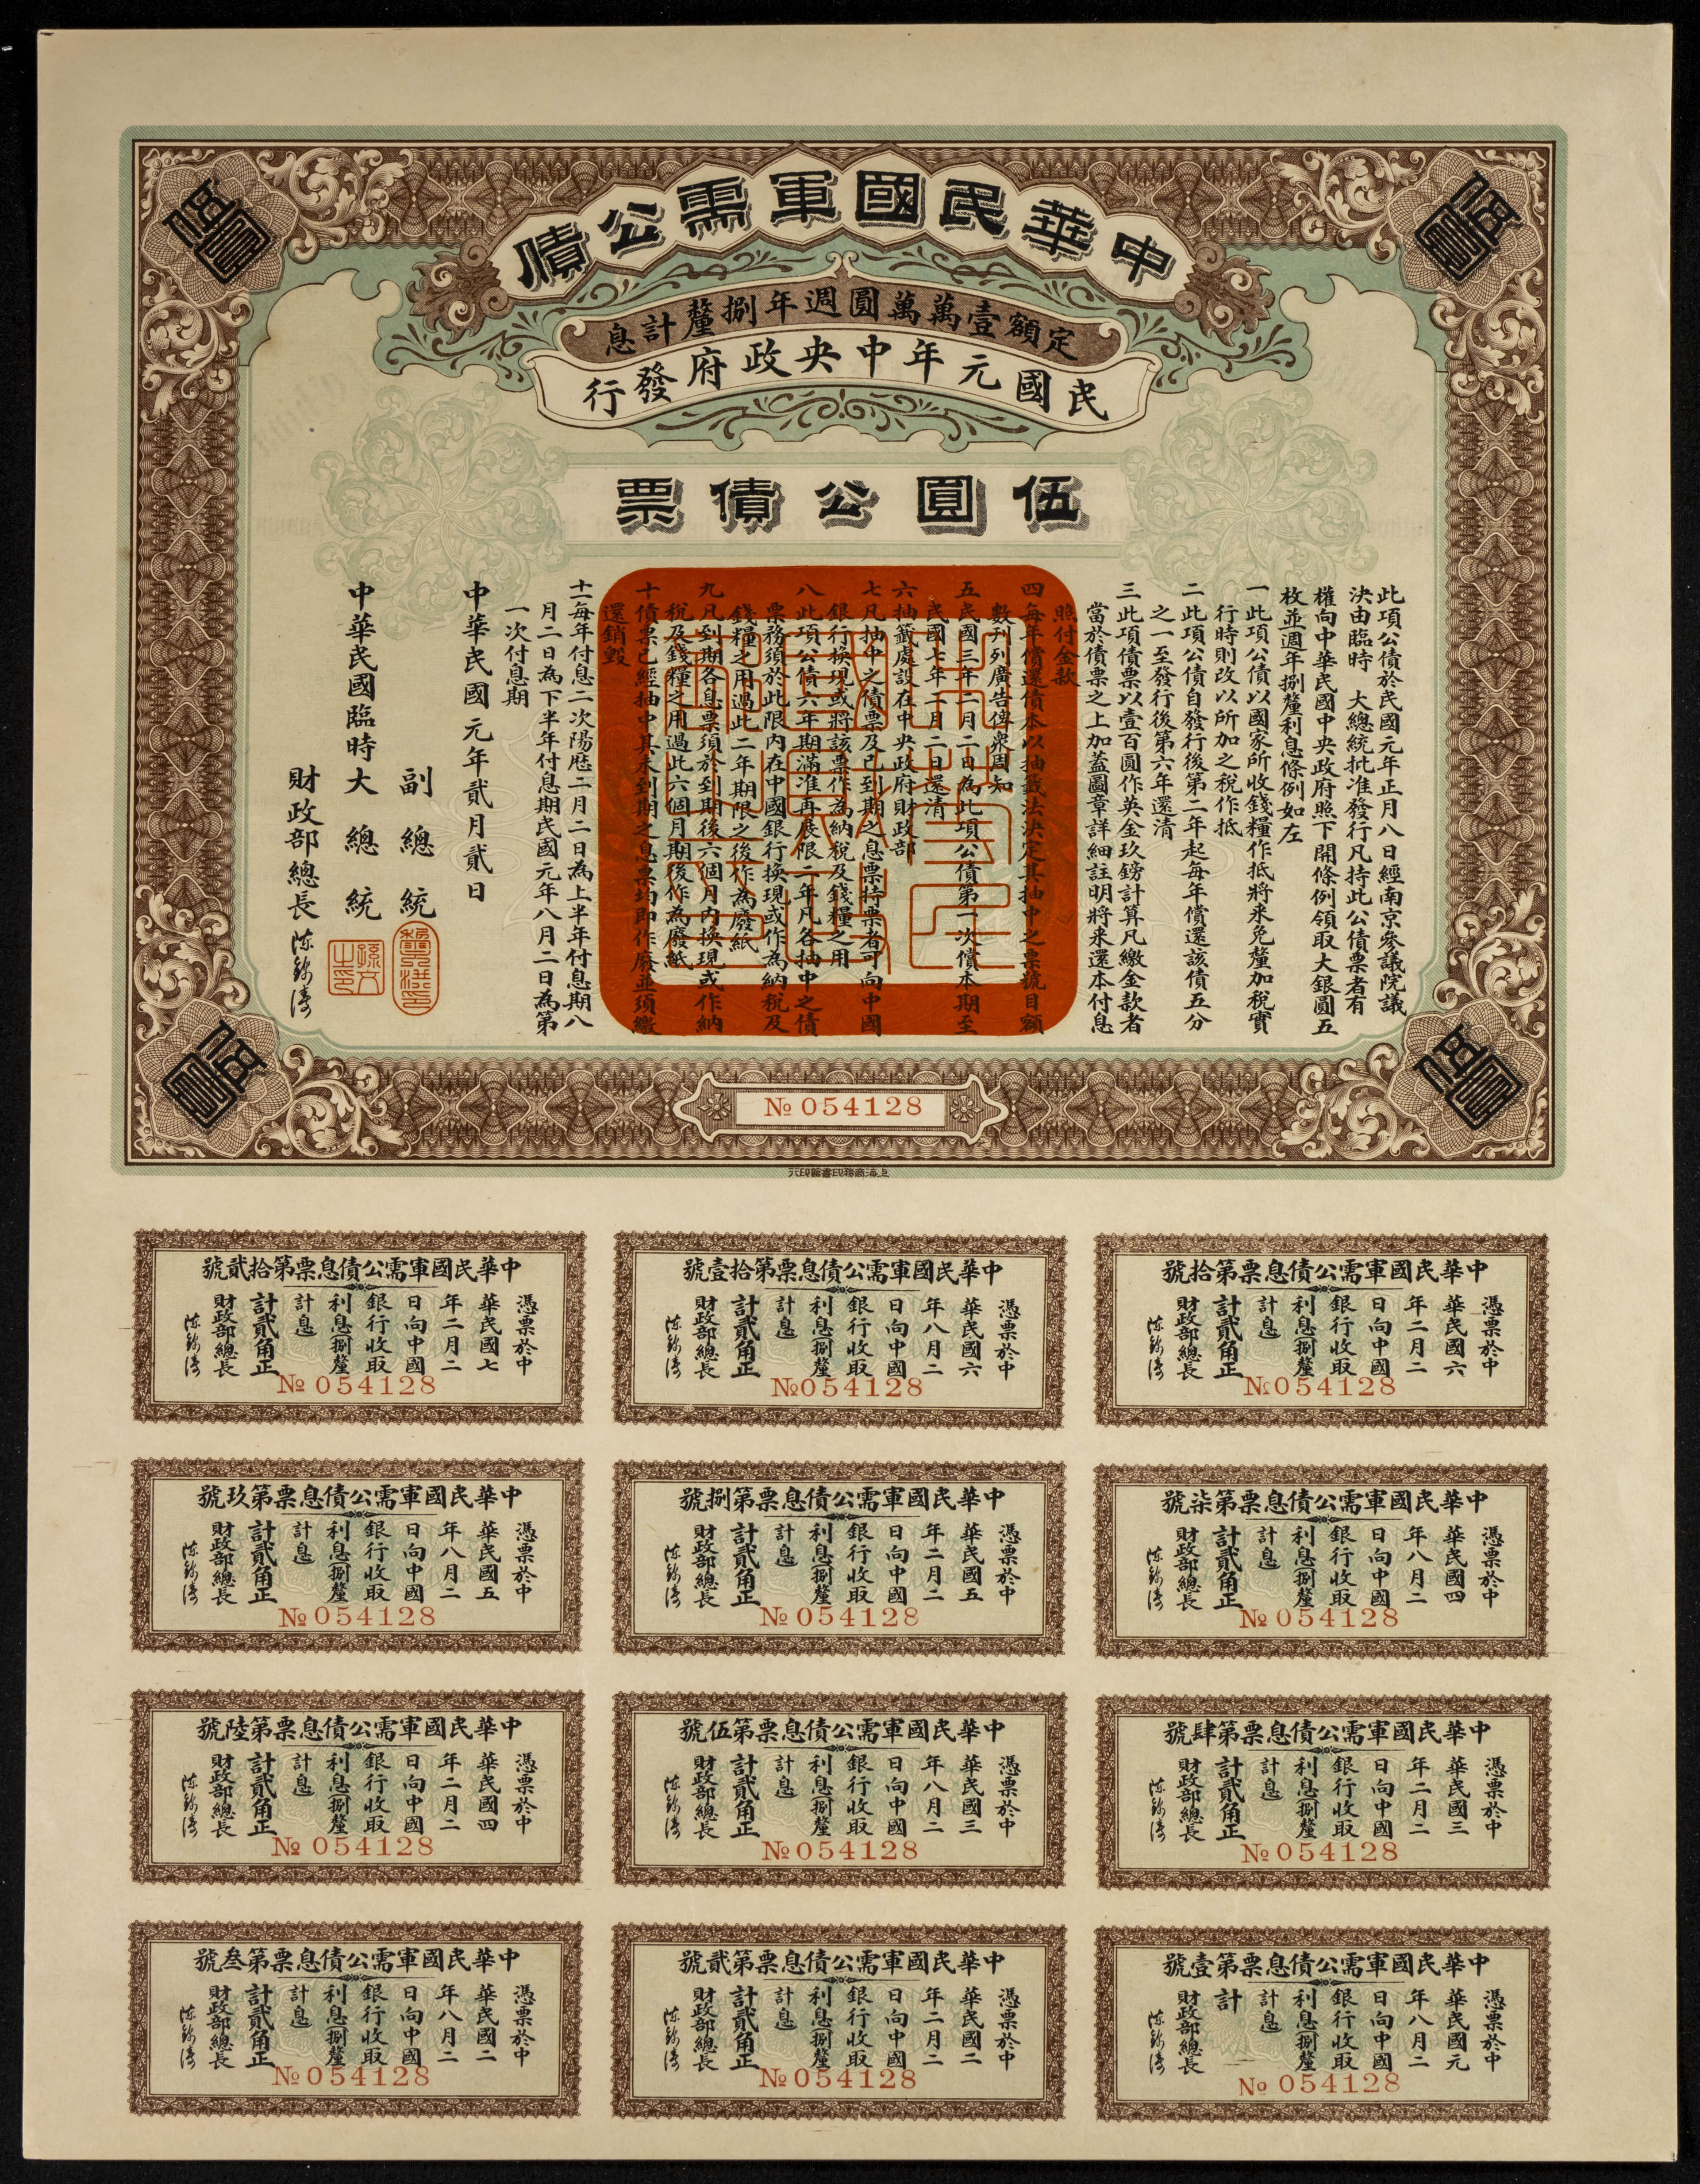 中華民國軍需公債
定額壹萬萬圓週年捌釐計息
民國元年中央政府發行
伍圓公債票
伍圓
伍圓
此項公債於民國元年正月八日經南京參議院議
決由臨時 大總統批准發行凡持此公債票者有
權向中華民國中央政府照下開條例領取大銀圓五
枚並週年捌釐利息條例如左
一此項公債以國家所收錢糧作抵將來免釐加稅實
行時則改以所加之稅作抵
二此項公債自發行後第二年起每年償還該債五分
之一至發行後第六年還清
三此項債票以壹百圓作英金玖鎊計算凡繳金款者
當於債票之上加蓋圖章詳細註明將來還本付息
照付金款
四每年償還債本以抽籤法決定其抽中之票號目額
數列列廣告俾衆周知
五民國三年二月二日為此項公債第一次償本期至
民國七年二月二日還清
六抽籤處設在中央政府財政部
七凡抽中之債票及已到期之息票持票者可向中國
銀行換現或將該票作為納稅及錢糧之用
八此項公債六年期滿准再展限二年凡各抽中之債
票務須於此限內在中國銀行換現或作為納稅及
錢糧之用過此二年期限之後作為廢紙
九凡到期各息票須於到期後六個月內換現或作納
稅及錢糧之用過此六個月期後作為廢紙
十債票已經抽中其未到期之息票均即作廢並須繳
還銷毀
十一每年付息二次陽曆二月二日為上半年付息期八
月二日為下半年付息期民國元年八月二日為第
一次付息期
中華民國元年貳月貳日
副總統
黎元洪印
中華民國臨時大總統
孫文之印
財政部總長 陳錦濤
伍圓
伍圓
№ 054128
上海商務印書館印行
中華民國軍需公債息票第拾號
憑票於中
華民國六
年二月二
日向中國
銀行收取
利息捌釐
計息
計貳角正
財政部總長
陳錦濤
№ 054128
中華民國軍需公債息票第拾壹號
憑票於中
華民國六
年八月二
日向中國
銀行收取
利息捌釐
計息
計貳角正
財政部總長
陳錦濤
№ 054128
中華民國軍需公債息票第拾貳號
憑票於中
華民國七
年二月二
日向中國
銀行收取
利息捌釐
計息
計貳角正
財政部總長
陳錦濤
№ 054128
中華民國軍需公債息票第柒號
憑票於中
華民國四
年八月二
日向中國
銀行收取
利息捌釐
計息
計貳角正
財政部總長
陳錦濤
№ 054128
中華民國軍需公債息票第捌號
憑票於中
華民國五
年二月二
日向中國
銀行收取
利息捌釐
計息
計貳角正
財政部總長
陳錦濤
№ 054128
中華民國軍需公債息票第玖號
憑票於中
華民國五
年八月二
日向中國
銀行收取
利息捌釐
計息
計貳角正
財政部總長
陳錦濤
№ 054128
中華民國軍需公債息票第肆號
憑票於中
華民國三
年二月二
日向中國
銀行收取
利息捌釐
計息
計貳角正
財政部總長
陳錦濤
№ 054128
中華民國軍需公債息票第伍號
憑票於中
華民國三
年八月二
日向中國
銀行收取
利息捌釐
計息
計貳角正
財政部總長
陳錦濤
№ 054128
中華民國軍需公債息票第陸號
憑票於中
華民國四
年二月二
日向中國
銀行收取
利息捌釐
計息
計貳角正
財政部總長
陳錦濤
№ 054128
中華民國軍需公債息票第壹號
憑票於中
華民國元
年八月二
日向中國
銀行收取
利息捌釐
計息
計
財政部總長
陳錦濤
№ 054128
中華民國軍需公債息票第貳號
憑票於中
華民國二
年二月二
日向中國
銀行收取
利息捌釐
計息
計貳角正
財政部總長
陳錦濤
№ 054128
中華民國軍需公債息票第叁號
憑票於中
華民國二
年八月二
日向中國
銀行收取
利息捌釐
計息
計貳角正
財政部總長
陳錦濤
№ 054128